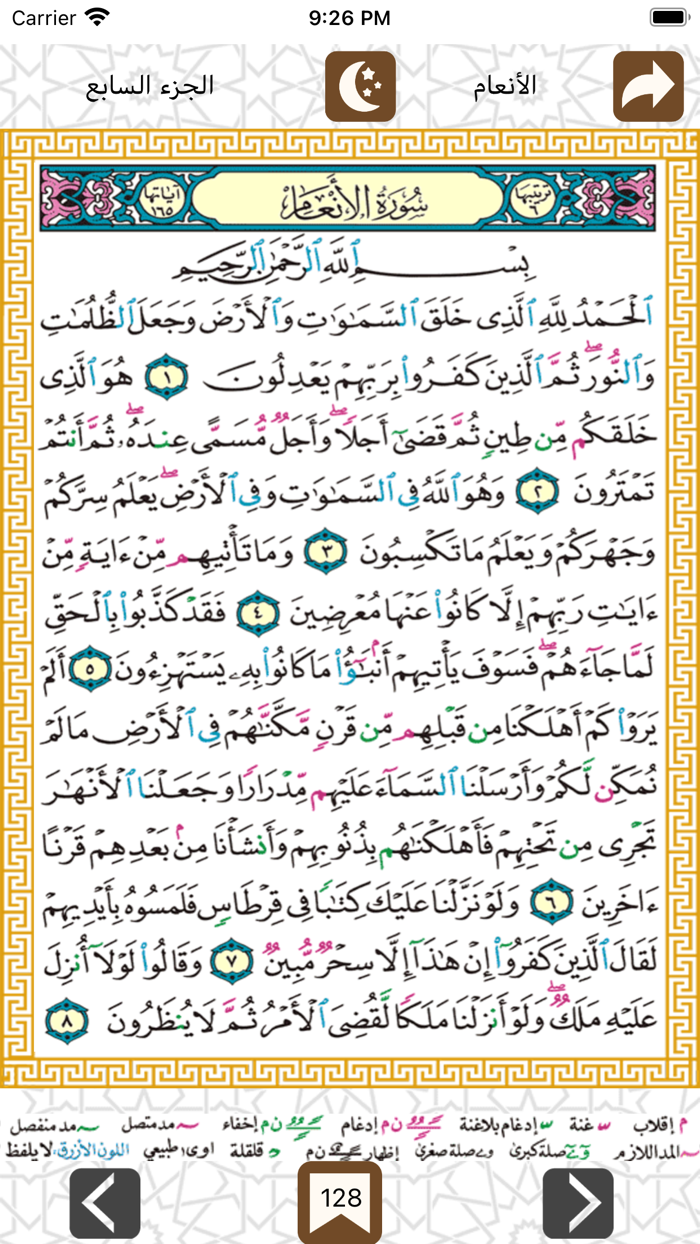 Carrier 9:26 PM
الأنعام الجزء السابع
ترتيبها ٦ سُورَةُ الأَنْعَامِ آياتها ١٦٥
بِسْمِ ٱللَّهِ ٱلرَّحْمَٰنِ ٱلرَّحِيمِ
ٱلْحَمْدُ لِلَّهِ ٱلَّذِى خَلَقَ ٱلسَّمَٰوَٰتِ وَٱلْأَرْضَ وَجَعَلَ ٱلظُّلُمَٰتِ
وَٱلنُّورَ ۖ ثُمَّ ٱلَّذِينَ كَفَرُوا۟ بِرَبِّهِمْ يَعْدِلُونَ ١ هُوَ ٱلَّذِى
خَلَقَكُم مِّن طِينٍ ثُمَّ قَضَىٰٓ أَجَلًا ۖ وَأَجَلٌ مُّسَمًّى عِندَهُۥ ۖ ثُمَّ أَنتُمْ
تَمْتَرُونَ ٢ وَهُوَ ٱللَّهُ فِى ٱلسَّمَٰوَٰتِ وَفِى ٱلْأَرْضِ ۖ يَعْلَمُ سِرَّكُمْ
وَجَهْرَكُمْ وَيَعْلَمُ مَا تَكْسِبُونَ ٣ وَمَا تَأْتِيهِم مِّنْ ءَايَةٍ مِّنْ
ءَايَٰتِ رَبِّهِمْ إِلَّا كَانُوا۟ عَنْهَا مُعْرِضِينَ ٤ فَقَدْ كَذَّبُوا۟ بِٱلْحَقِّ
لَمَّا جَآءَهُمْ ۖ فَسَوْفَ يَأْتِيهِمْ أَنۢبَٰٓؤُا۟ مَا كَانُوا۟ بِهِۦ يَسْتَهْزِءُونَ ٥ أَلَمْ
يَرَوْا۟ كَمْ أَهْلَكْنَا مِن قَبْلِهِم مِّن قَرْنٍ مَّكَّنَّٰهُمْ فِى ٱلْأَرْضِ مَا لَمْ
نُمَكِّن لَّكُمْ وَأَرْسَلْنَا ٱلسَّمَآءَ عَلَيْهِم مِّدْرَارًا وَجَعَلْنَا ٱلْأَنْهَٰرَ
تَجْرِى مِن تَحْتِهِمْ فَأَهْلَكْنَٰهُم بِذُنُوبِهِمْ وَأَنشَأْنَا مِنۢ بَعْدِهِمْ قَرْنًا
ءَاخَرِينَ ٦ وَلَوْ نَزَّلْنَا عَلَيْكَ كِتَٰبًا فِى قِرْطَاسٍ فَلَمَسُوهُ بِأَيْدِيهِمْ
لَقَالَ ٱلَّذِينَ كَفَرُوٓا۟ إِنْ هَٰذَآ إِلَّا سِحْرٌ مُّبِينٌ ٧ وَقَالُوا۟ لَوْلَآ أُنزِلَ
عَلَيْهِ مَلَكٌ ۖ وَلَوْ أَنزَلْنَا مَلَكًا لَّقُضِىَ ٱلْأَمْرُ ثُمَّ لَا يُنظَرُونَ ٨
م إقلاب غنة إدغام بلاغنة ن م إدغام ن م إخفاء مد متصل مد منفصل
المد اللازم صلة كبرى صلة صغرى إظهار ن م قلقلة اوى طبيعي اللون الأزرق لا يلفظ
128